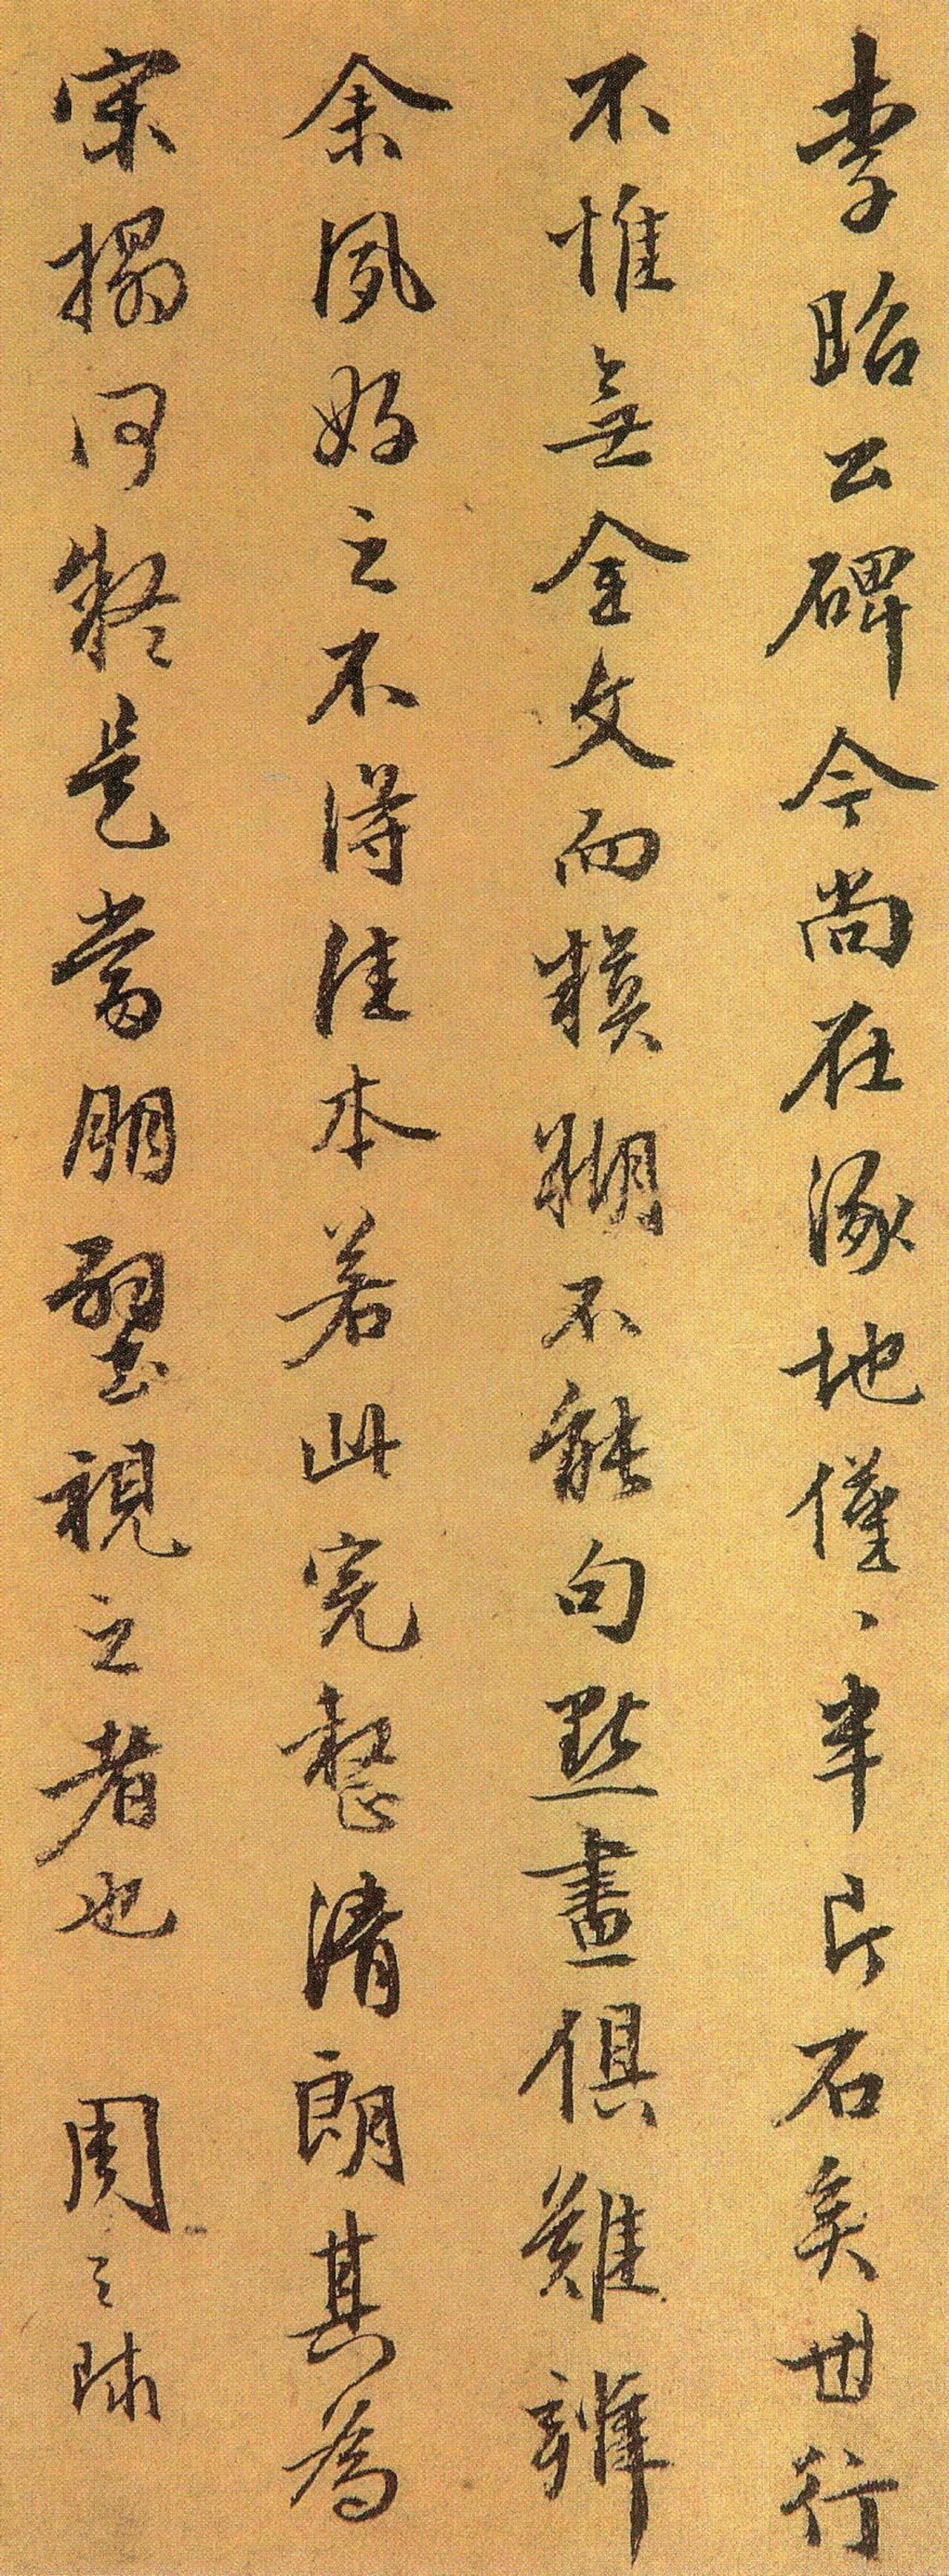 李昭公碑今尚在涿地僅〻半片石矣世行
不惟無全文而模糊不能句點畫俱難辨
余夙好之不得佳本若此完整清朗其為
宋搨何疑是當朋璧視之者也 周之